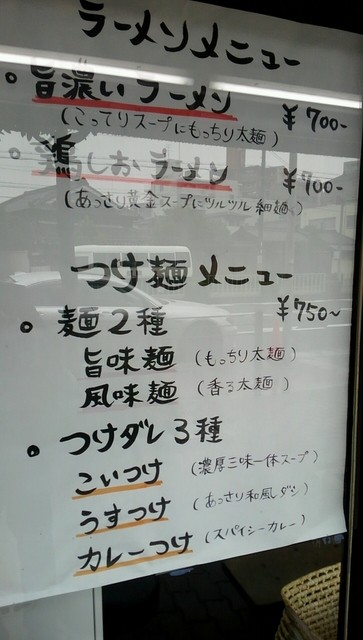 ラーメンメニュー
。旨濃いラーメン ¥700-
(こってりスープにもっちり太麺)
。鶏しおラーメン ¥700-
(あっさり黄金スープにツルツル細麺)
つけ麺メニュー
¥750~
。麺2種
旨味麺 (もっちり太麺)
風味麺 (香る太麺)
。つけダレ3種
こいつけ (濃厚三味一体スープ)
うすつけ (あっさり和風ダシ)
カレーつけ (スパイシーカレー)